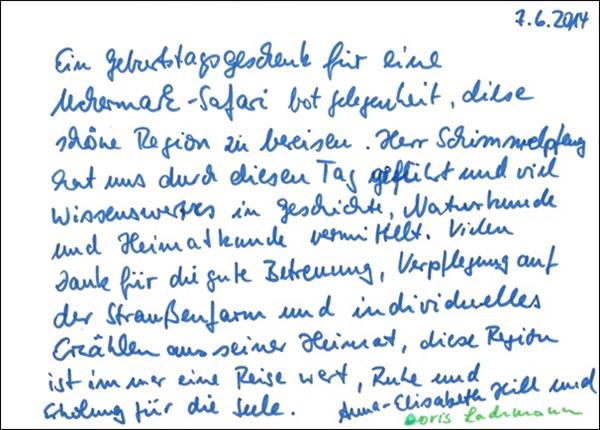 7.6.2014
Ein Geburtstagsgeschenk für eine
Uckermark-Safari bot Gelegenheit, diese
schöne Region zu bereisen. Herr Schimmelpfeng
hat uns durch diesen Tag geführt und viel
Wissenswertes in Geschichte, Naturkunde
und Heimatkunde vermittelt. Vielen
Dank für die gute Betreuung, Verpflegung auf
der Straußenfarm und individuelles
Erzählen aus seiner Heimat, diese Region
ist immer eine Reise wert, Ruhe und
Erholung für die Seele. Anna-Elisabeth Hill und
Doris Lachmann